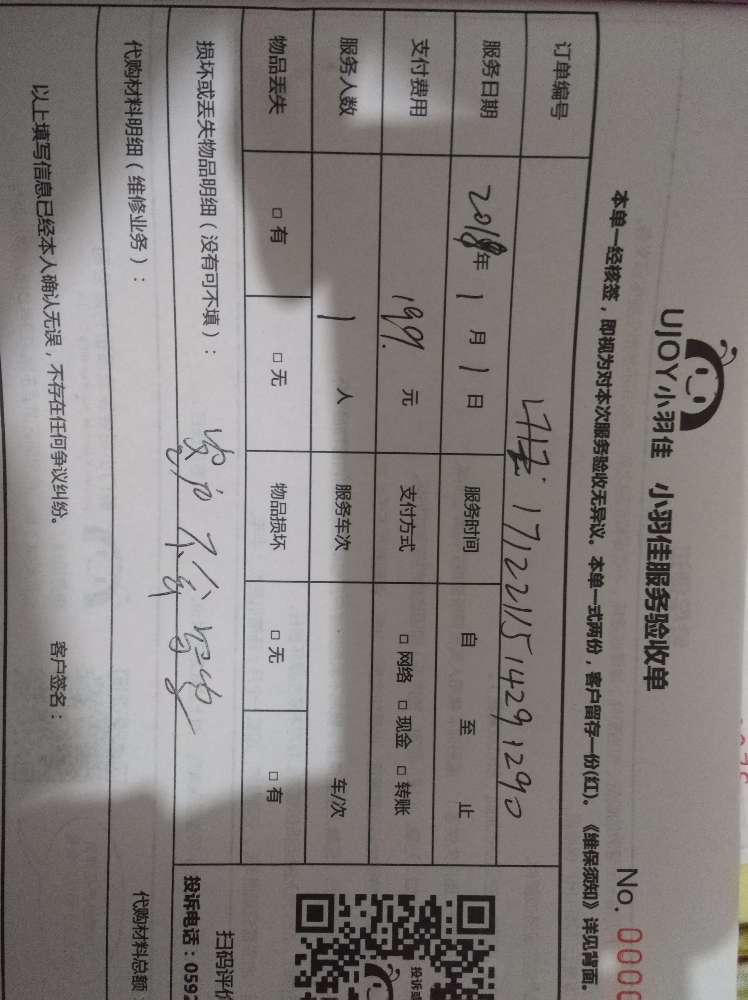 UJOY小羽佳 小羽佳服务验收单
No. 0000
本单一经核签，即视为对本次服务验收无异议。本单一式两份，客户留存一份(红)。《维保须知》详见背面。
订单编号 1712211514291290
服务日期 2018年1月1日 服务时间 自 至 止
支付费用 199. 元 支付方式 □ 网络 □ 现金 □ 转账
服务人数 1 人 服务车次 车/次
物品丢失 □ 有 □ 无 物品损坏 □ 无 □ 有
损坏或丢失物品明细（没有可不填）：
客户不会写字
代购材料明细（维修业务）： 代购材料总额
以上填写信息已经本人确认无误，不存在任何争议纠纷。 客户签名：
投诉或
扫码评价
投诉电话：0592